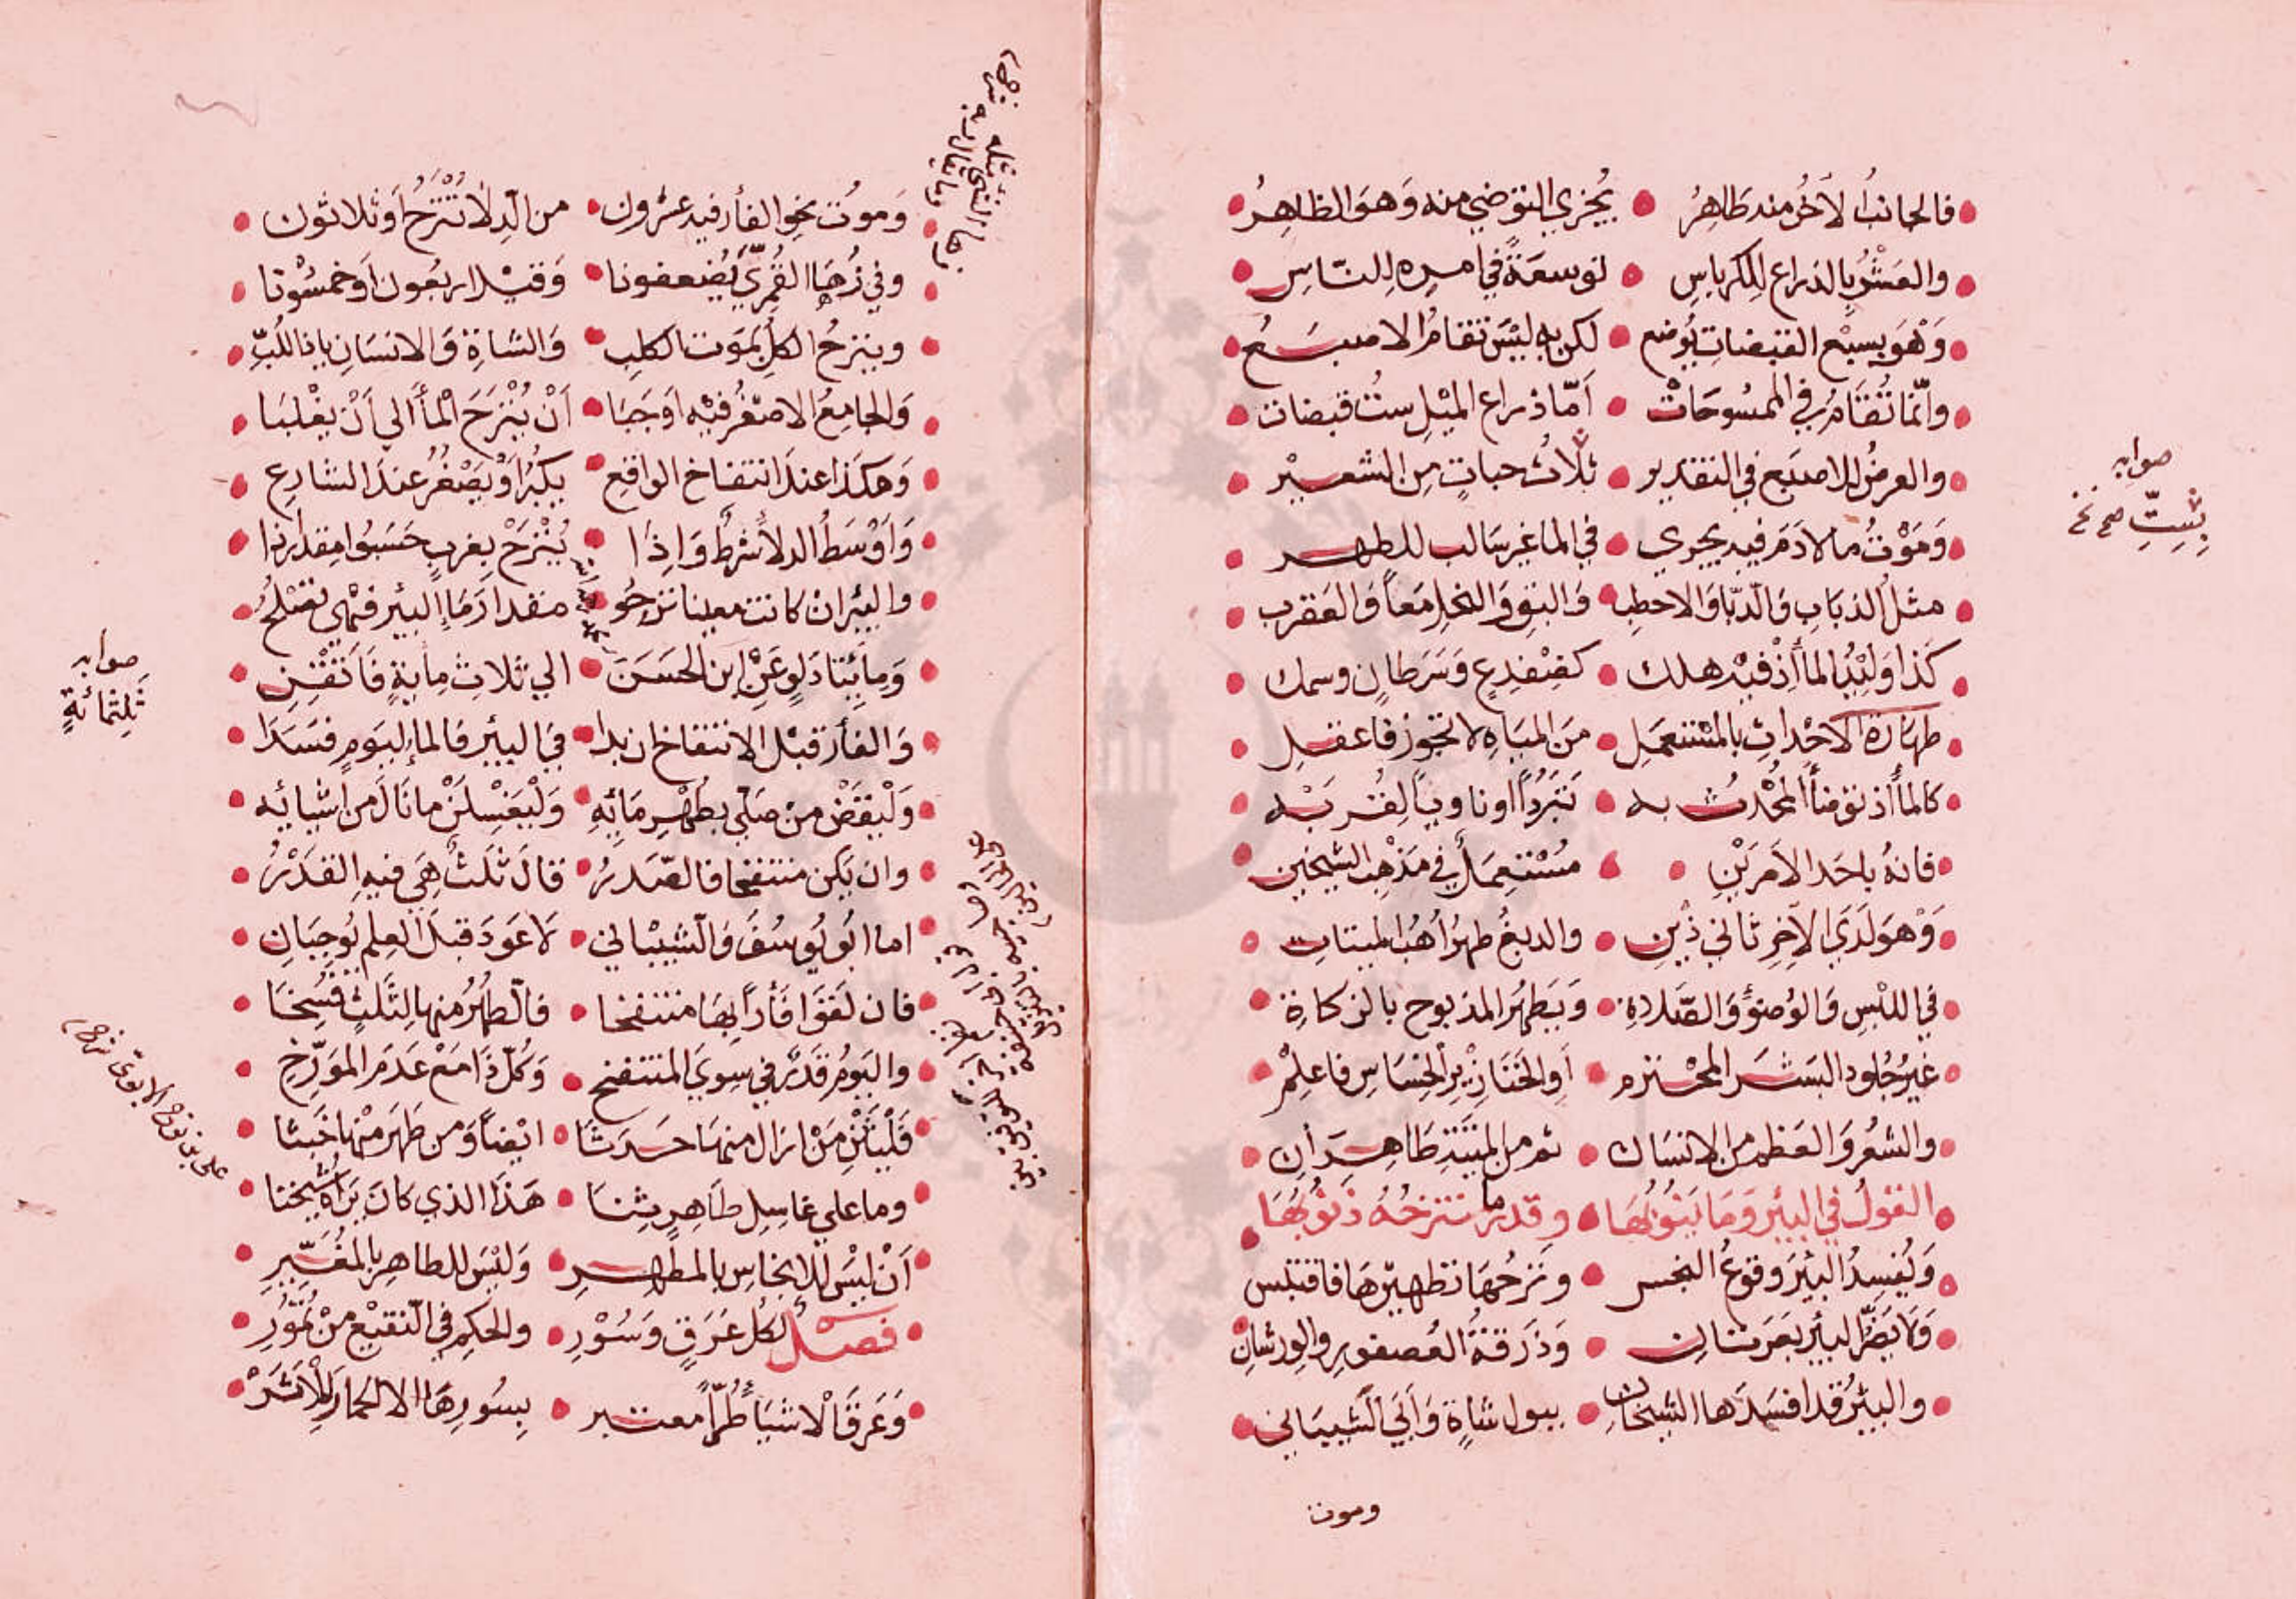 فالجانبُ الاَخَرُ منه طَاهِرُ • يُجزي التوَضي منه وَهوَ الظاهِرُ
والعَشْرُ بالذراع للكرباسِ • توسعَةً في امره للنّاسِ
وَهْوَ بسبْع القبضاتِ يُوضع • لكن به ليْسَ تقامُ الاصبَعُ
وانّما تُقَامُ في الممسُوحَاتْ • اَمّا ذراع الميْلِ ستُ قبضات
والعرضُ للاصبَع في التقدير • ثلاثُ حباتٍ مِن الشعيْر
وَمَوْتُ ما لا دَمَ فيه يجري • في الما غير سَالب للطهر
مثلُ الذبَابِ وَالدّبا وَالاحطِب • وَالبقِ وَالنحلِ مَعاً وَالعَقرب
كَذا وَليْدُ الماأ اِذْ فيْه هلك • كضِفْدِعٍ وَسَرَطانٍ وسمك
طهَارَةُ الاَحْدَاثِ بالمسْتعمَلِ • منَ الميَاهِ لا تجوز فاعقلِ
كالماأ اذ توَضأ المُحْدثُ به • تَبَرُّداً او ناوياً لِقُربَتِه
فانهُ باحَدِ الاَمرَيْنِ • مُسْتَعمَلٌ في مَذهِب الشيخين
وَهْوَ لَدَي الآخِرِ ثاني ذَيْنِ • والدبغُ طهرُ أُهُب الميتاتِ
في اللبْسِ وَالوُضوءِ وَالصَّلاةِ • وَيَطهُر المذبوح بالزكاة
غيرُ جُلودِ البَشَرِ المحْترَم • اَوِ الخَنَازِيْرِ الخِسَاسِ فاعلِمْ
والشعْرُ وَالعَظم من الانسَان • ثم من الميْتَةِ طَاهِرَانِ
القولُ في البيْرِ وَمَا يَنُوْبُهَا • وقدر ما تنزحُهُ ذَنُوْبُهَا
وَيُفسِدُ البيْرَ وقوعُ النجس • ونَزحُهَا تطهيْرهَا فاقتبس
وَلا يَضرُّ البيْرَ بَعرَتانِ • وَذَرقَةُ العُصفورِ والوِرشانِ
والبيْرُ قد افسَدَها الشيخانِ • ببول شاةٍ وَاَبَي الشيبَاني
ومون
صوابه
بِسِتِّ صح نخ
وَموتُ نحو الفأر فيه عشرون • من الدِلا تُنْتَزَحُ اَو ثلاثون
وفي زُهَا القُمريِّ يُضعفونا • وَقيْل اربعُون اَو خمسُوْنا
وينزحُ الكل بمَوت الكلبِ • وَالشاةِ وَالانسَانِ ياذا اللُبِّ
وَالجامِعُ الاصْغرُ فيْه اَوجَبَا • اَنْ يُنْزَحَ الْمأُ الي اَنْ يغْلبَا
وَهكذا عندَ انتفاخ الواقعِ • يكبُرُ اَوْ يَصْغُرُ عندَ الشارعِ
وَاَوْسَطُ الدلأ شرطٌ وَاِذَا • يُنْزَحْ بغربٍ حَسَبُوا مِقدارذا
والبيْر ان كانت معينا نزحُو • مقدارَ مَا البيْر فهْي تصْلحُ
وَمِايَتا دَلوٍ عَنْ ابن الحسَن • الي ثلاثِ مِايةٍ فَاَتقِنِ
وَالفأر قبْل الانتفاخ ان بدا • في البيْر فالماء ليَومٍ فسَدَا
وَلْيَقضْ منْ صَلّي بطُهْرِ مَائِهِ • وَلْيَغسِلنْ ما نَالَ من اَشيائِه
وان يكن منتفخا فالصّدرُ • قالَ ثلثٌ هِيَ فيه القدْرُ
اما ابُو يُوسُفَ وَالشيبَاني • لا عَودَ قبلَ العِلم يُوجِبَانِ
فان لَقوَا فَأْرا بهَا منتفخا • فالطهرُ منها لِلثَّلَثِ فُسِخَا
واليَومُ قَدرٌ في سِوَي المنتفخِ • وَكُلّ ذَا مَعْ عَدَم المؤرّخِ
فَلْيَثنِ مَنْ ازال منهَا حَدَثا • ايْضاً وَمن طهَّرَ منْها خَبَثا
وما علي غاسِل طاهرٍ ثِنا • هَذا الذي كانَ يَرَاهُ شيخنا
اَنْ ليسَ للانجاسِ بالمطهِّرِ • وَليْسَ للطاهر بالمُغَيِّرِ
فصْلٌ لكل عَرَقٍ وَسُوْرِ • والحكمِ في النّقيْع منْ تُمُوْرِ
وَعَرَقُ الاَشيَاءِ طُرّاً معتبر • بِسُورِهَا الا الحمار للاَثَرْ
صوابه
ثلثمائةٍ